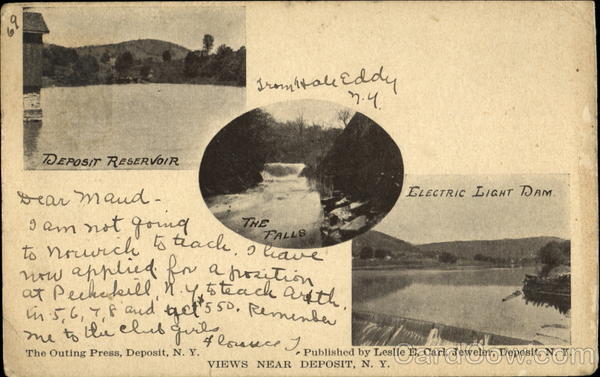 69
From Hale Eddy
N.Y.
DEPOSIT RESERVOIR
ELECTRIC LIGHT DAM.
THE
FALLS
Dear Maud -
I am not going
to Norwich to teach. I have
now applied for a position
at Peekskill, N.Y. to teach Arith.
in 5, 6, 7, 8 and get $550. Remember
me to the club girls
Florence T
The Outing Press, Deposit, N. Y.
Published by Leslie E. Carl, Jeweler, Deposit, N. Y.
VIEWS NEAR DEPOSIT, N. Y.
CardCow.com